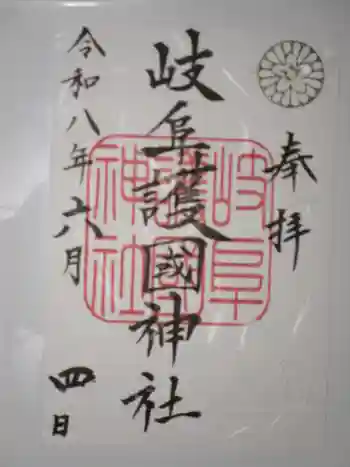 奉拝
岐阜護國神社
岐阜護國神社
令和八年六月四日